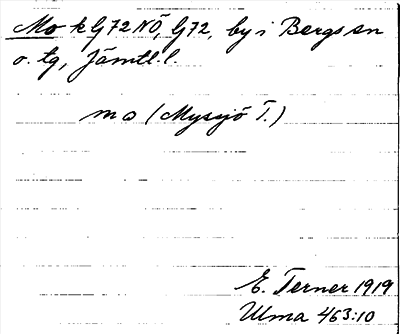 Mo k G72NÖ, G72, by i Bergs sn
o. tg, Jämtl.l.
mo (Myssjö T.)
E. Terner 1919
Ulma 463:10